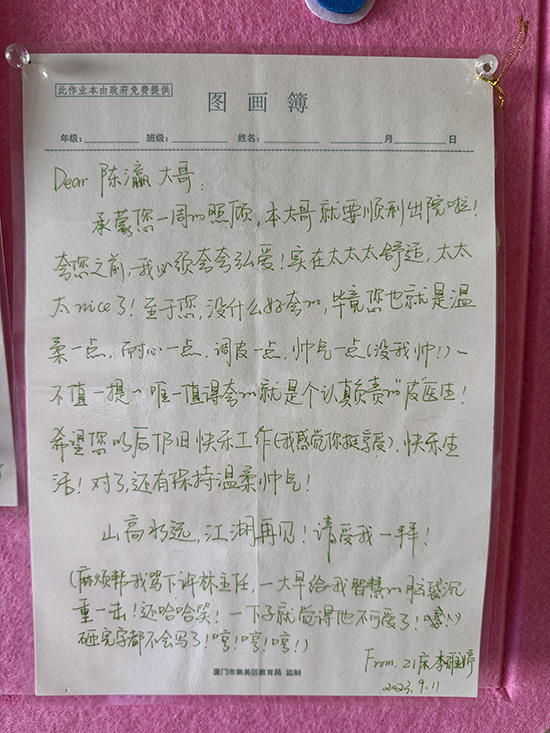 此作业本由政府免费提供
图画簿
年级：________ 班级：________ 姓名：________ ____月____日
Dear 陈瀛大哥：
承蒙您一周的照顾，本大哥就要顺利出院啦！
夸您之前，我必须夸夸弘爱！实在太太太舒适，太太
太nice了！至于您，没什么好夸的，毕竟您也就是温
柔一点，耐心一点，调皮一点，帅气一点(没我帅!)~
不值一提~唯一值得夸的就是个认真负责的"皮"医生！
希望您以后仍旧快乐工作(我感觉你挺享受)，快乐生
活！对了，还有保持温柔帅气！
山高水远，江湖再见！请受我一拜！
(麻烦帮我骂下许林主任，一大早给我智慧的脑袋沉
重一击！还哈哈笑！一下子就觉得他不可爱了！
砸完字都不会写了！哼！哼！哼！)
From. 21床 李
2023.9.11
厦门市集美区教育局 监制